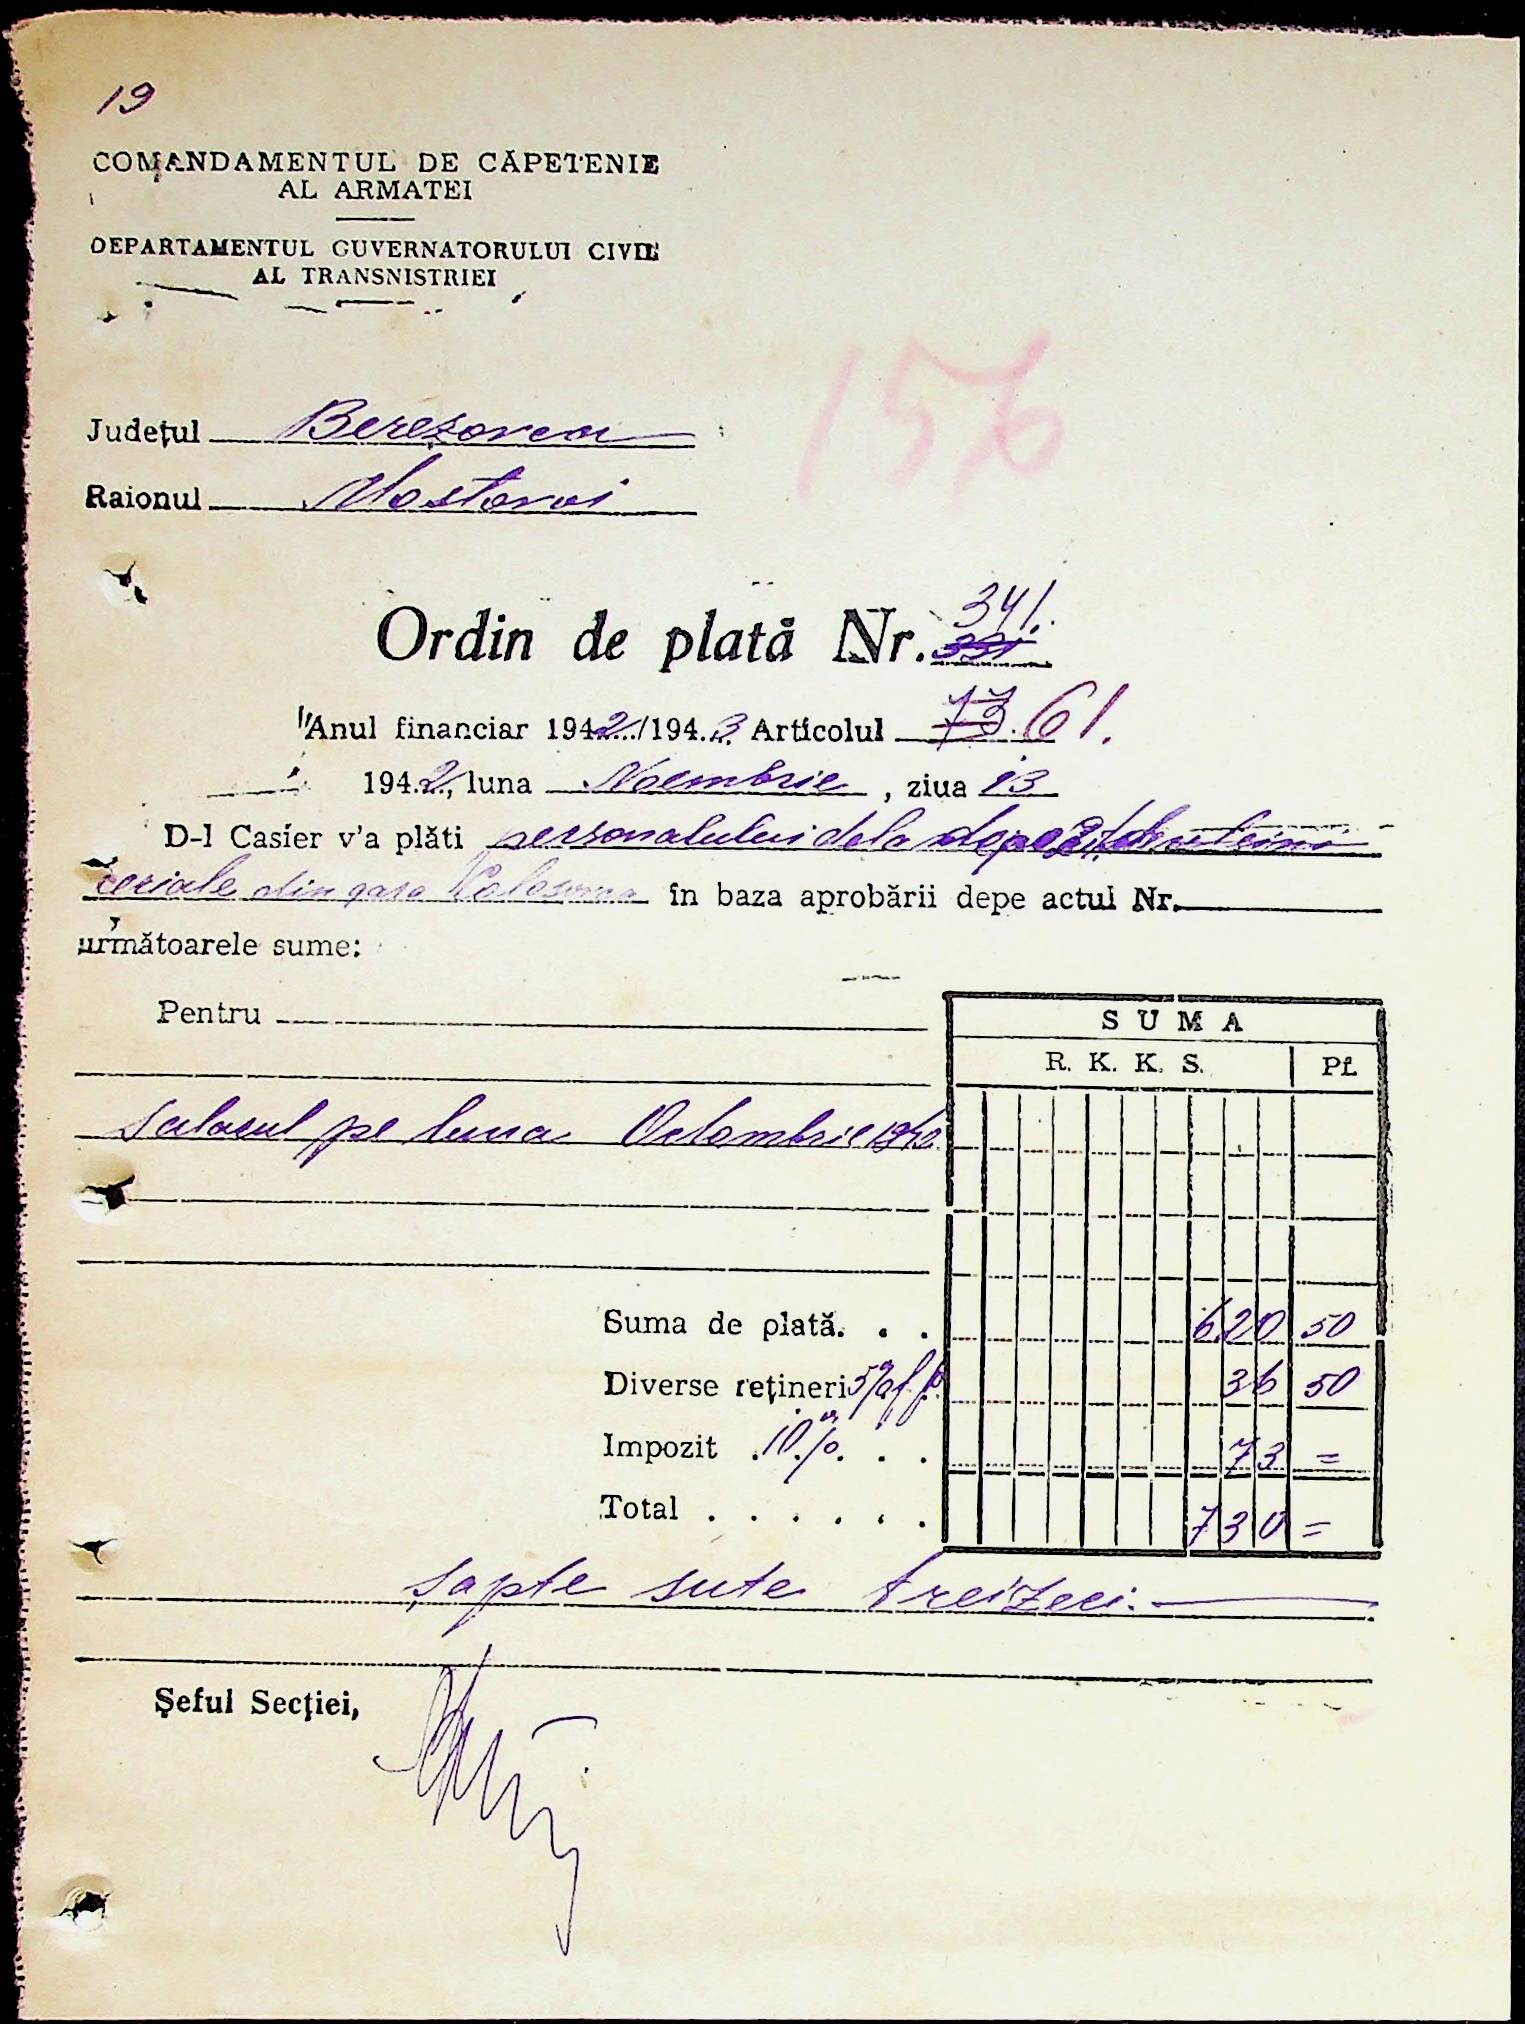 19
COMANDAMENTUL DE CĂPETENIE
AL ARMATEI
DEPARTAMENTUL GUVERNATORULUI CIVIL
AL TRANSNISTRIEI
156
Județul Berezovca
Raionul Mostovoi
341.
Ordin de plată Nr. 331
Anul financiar 1942/1943 Articolul 73. 61.
1942, luna Noembrie, ziua 13
D-l Casier v'a plăti personalului dela depozitul
ceriale din gara în baza aprobării depe actul Nr.
următoarele sume:
Pentru
SUMA
R. K. K. S. Pf.
Salarul pe luna Octombrie 1942
Suma de plată. . . 620 50
Diverse rețineri 5% 36 50
Impozit 10% . . . 73 =
Total . . . . . . 730 =
șapte sute treizeci.
Șeful Secției,